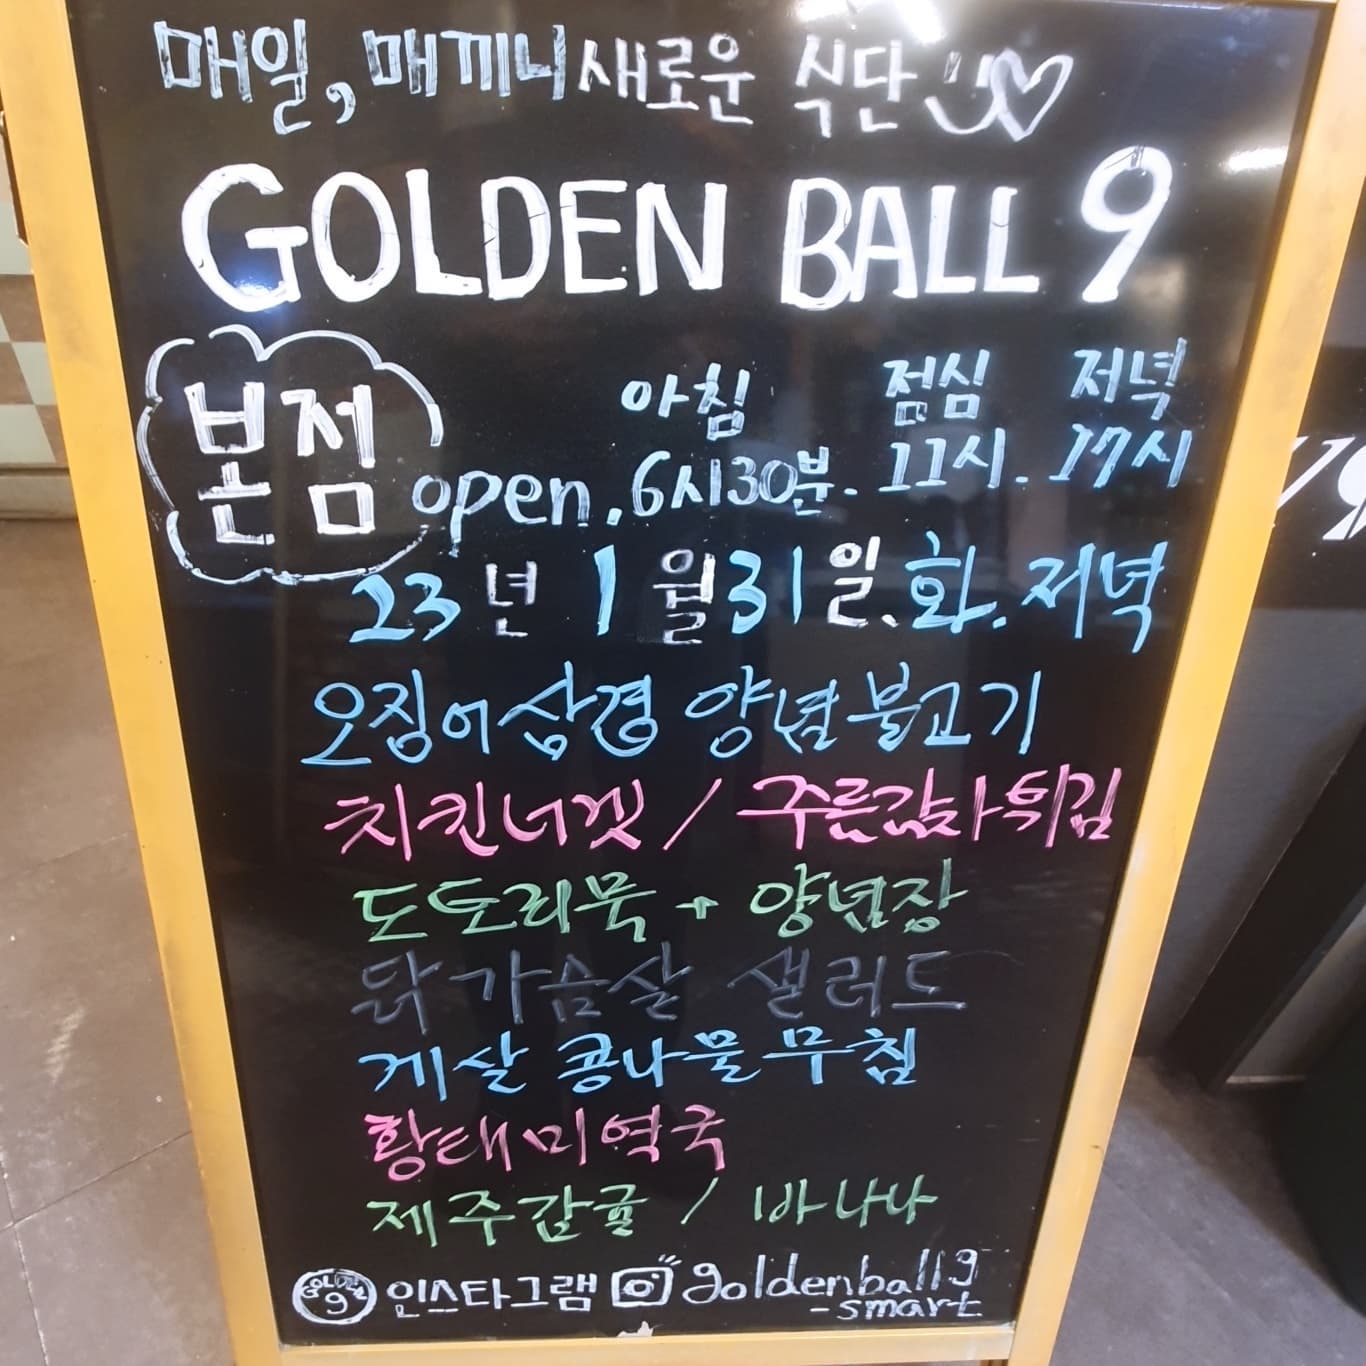 매일, 매끼니 새로운 식단
GOLDEN BALL 9
본점
아침 점심 저녁
open. 6시30분. 11시. 17시
23년 1월 31일. 화. 저녁
오징어삼겹 양념불고기
치킨너겟 / 주름감자튀김
도토리묵 + 양념장
닭가슴살 샐러드
게살 콩나물무침
황태미역국
제주감귤 / 바나나
GOLDEN BALL 9 인스타그램 goldenball9
-smart